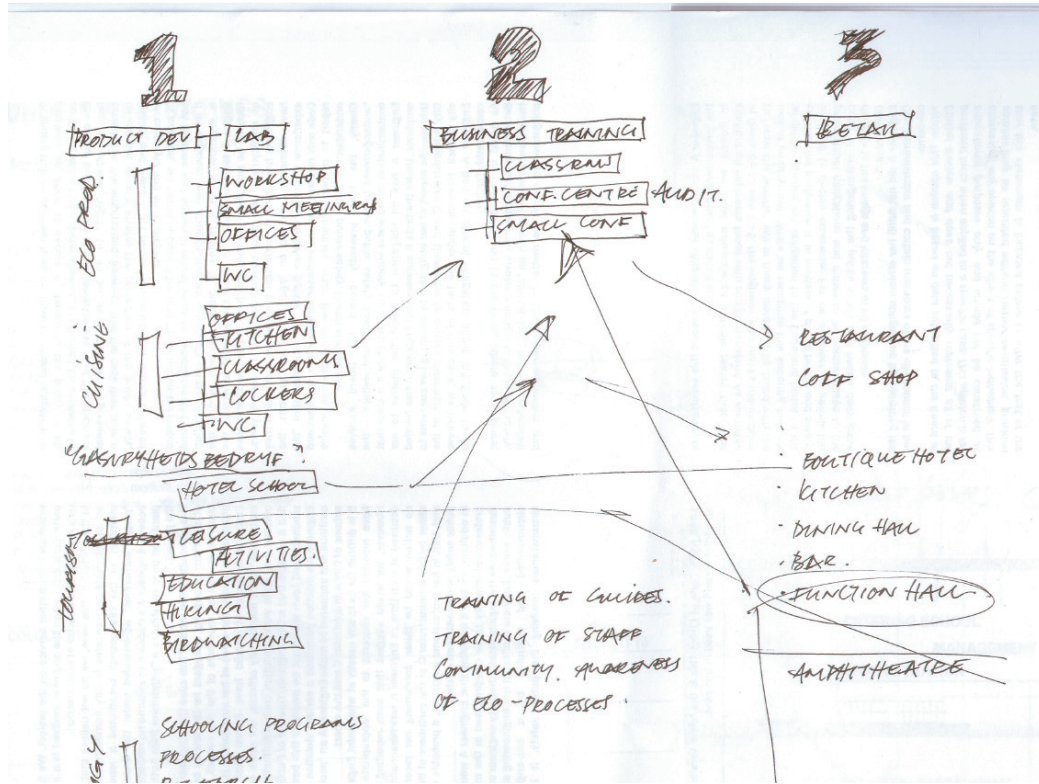 1
2
3
PRODUCT DEV
LAB
ECO PROD.
WORKSHOP
SMALL MEETING RMS
OFFICES
WC
CUISINE
OFFICES
KITCHEN
CLASSROOMS
LOCKERS
WC
"GASVRYHEIDS BEDRYF".
HOTEL SCHOOL
TOURISM
TOURISM
LEISURE
ACTIVITIES.
EDUCATION
HIKING
BIRDWATCHING
SCHOOLING PROGRAMS
PROCESSES.
BUSINESS TRAINING
CLASSRM
CONF. CENTRE AUDIT.
SMALL CONF
TRAINING OF GUIDES.
TRAINING OF STAFF
COMMUNITY. AWARENESS
OF ECO-PROCESSES.
RETAIL
RESTAURANT
COFF SHOP
· BOUTIQUE HOTEL
· KITCHEN
· DINING HALL
· BAR.
· FUNCTION HALL
· AMPHITHEATRE